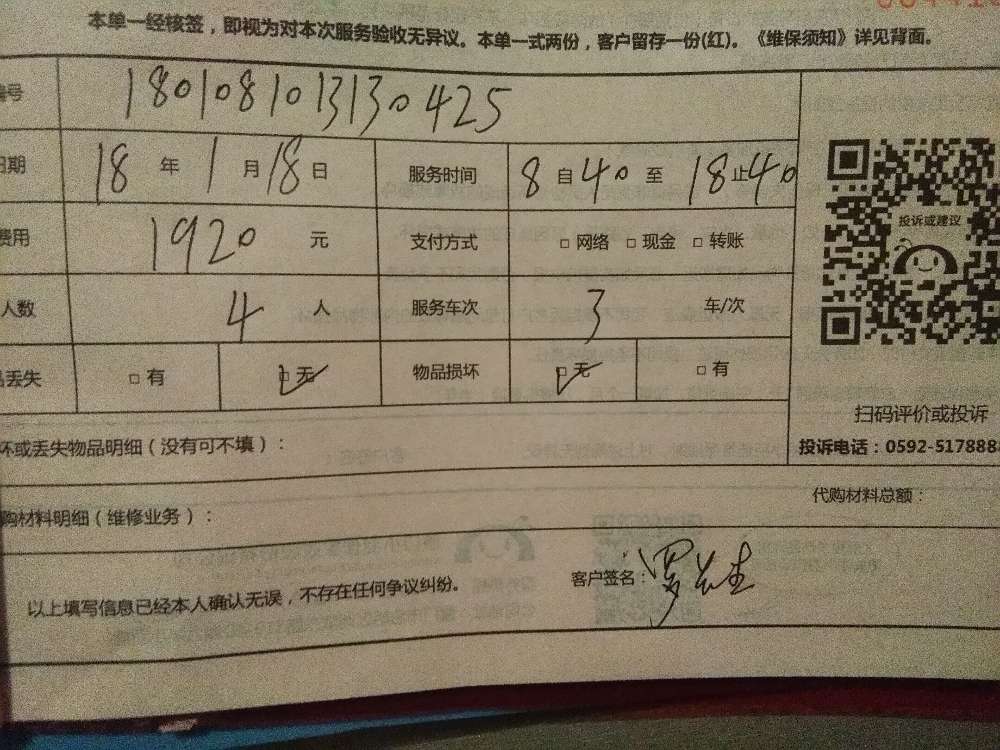 本单一经核签，即视为对本次服务验收无异议。本单一式两份，客户留存一份(红)。《维保须知》详见背面。
编号 180108101313130425
日期 18 年 1 月 18 日 服务时间 8 自 40 至 18 止 40
费用 1920 元 支付方式 □ 网络 □ 现金 □ 转账
投诉或建议
人数 4 人 服务车次 3 车/次
品丢失 □ 有 □ 无 物品损坏 □ 无 □ 有
扫码评价或投诉
坏或丢失物品明细（没有可不填）：
投诉电话：0592-5178888
购材料明细（维修业务）：
代购材料总额：
以上填写信息已经本人确认无误，不存在任何争议纠纷。 客户签名：罗先生